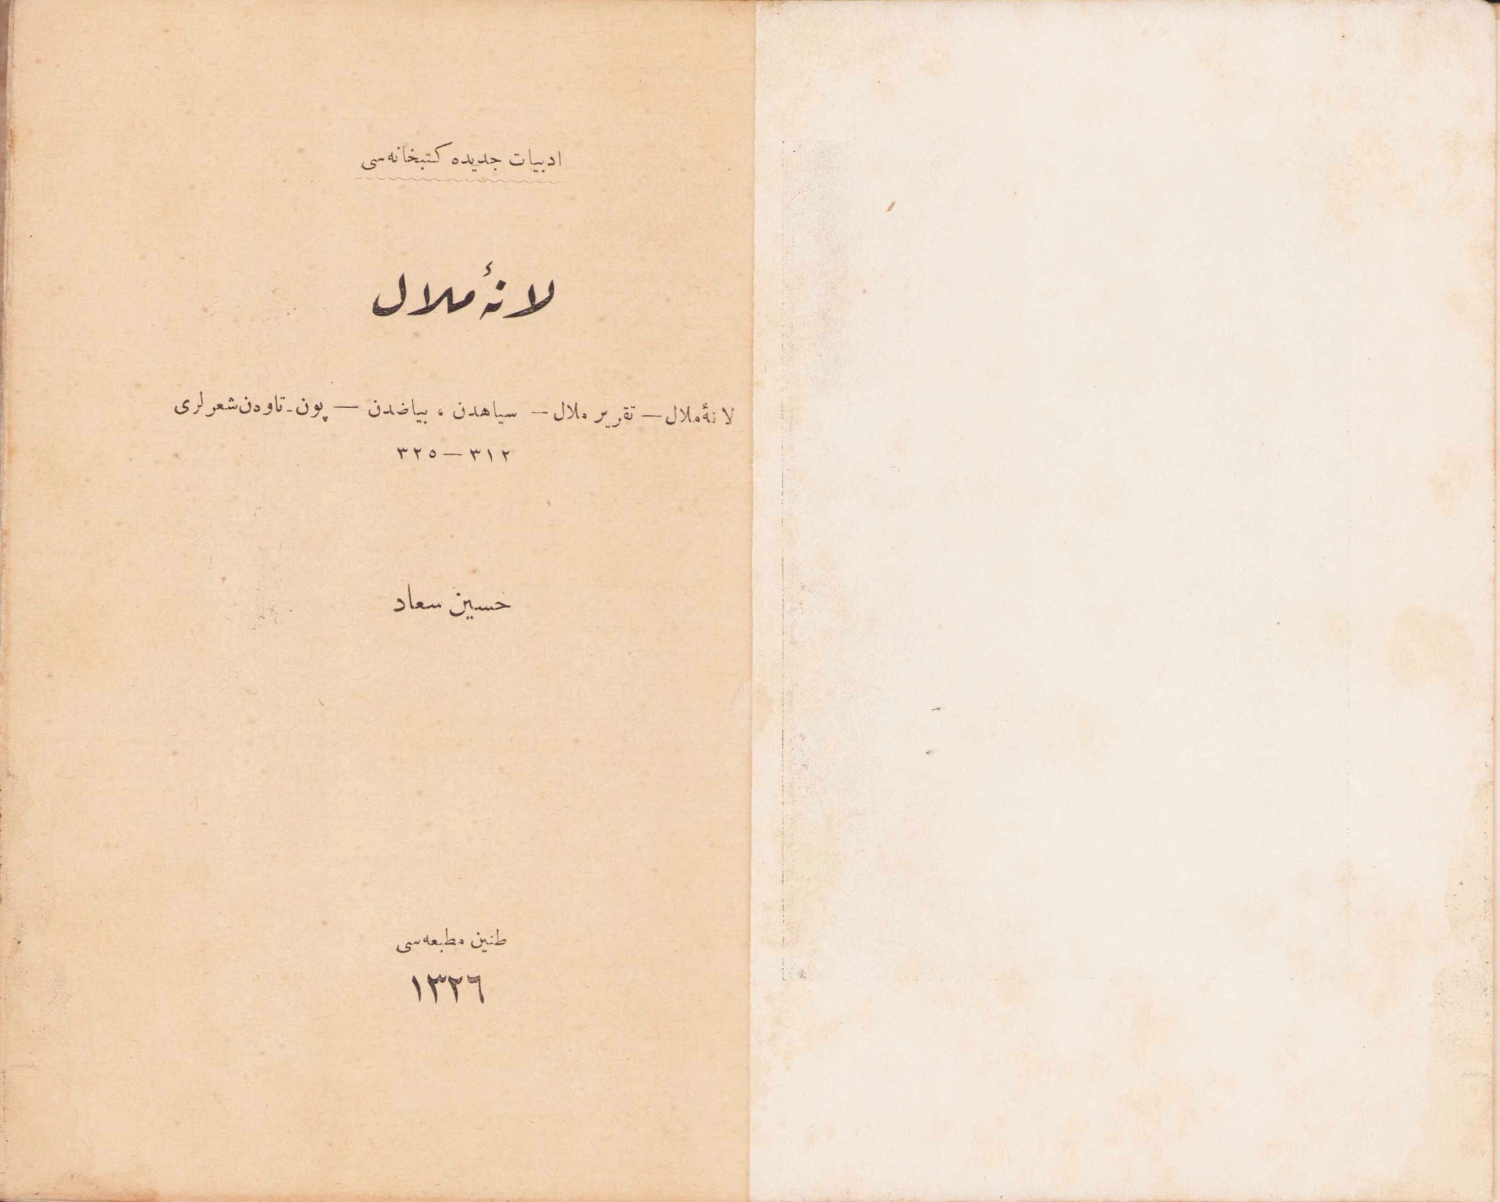 ادبيات جديده كتبخانه‌سی
لانۀ ملال
لانۀ ملال — تقرير ملال — سياهدن ، بياضدن — پون ـ تاوه‌ن شعرلری
٣١٢ — ٣٢٥
حسين سعاد
طنين مطبعه‌سی
١٣٢٦